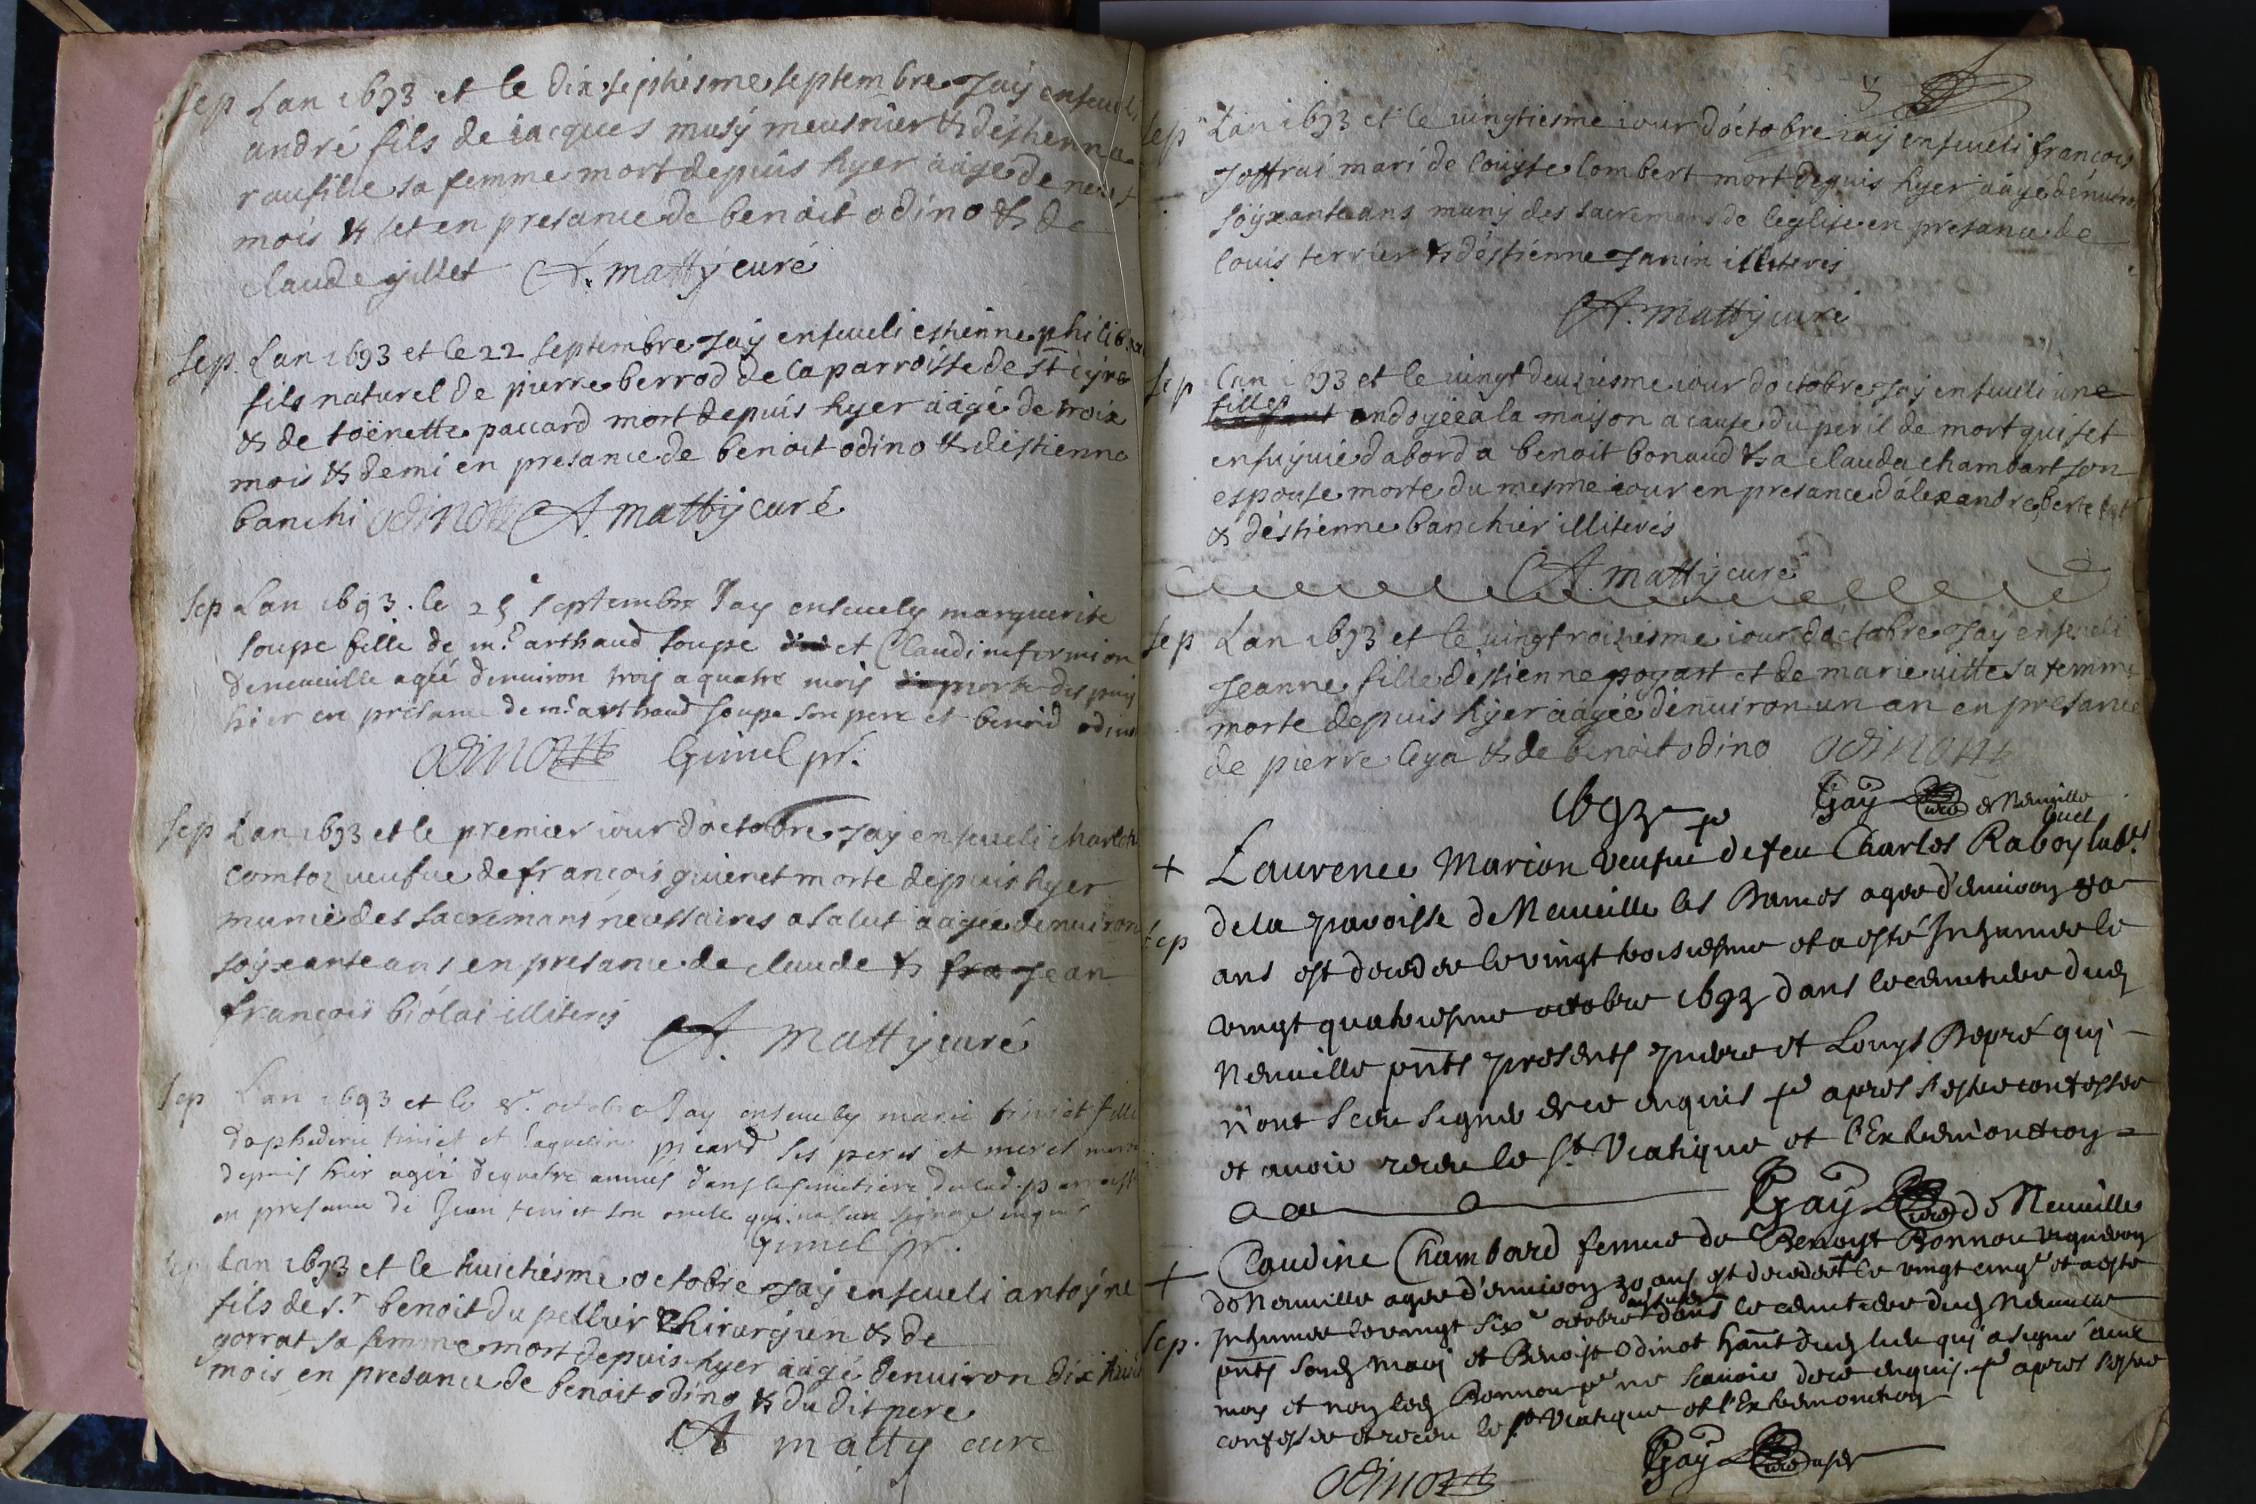 sep Lan 1693 et le dix sephiesme septembre Jay enseueli
andré fils de iacques musy meusnier & deshienne
raufille sa femme mort depuis hyer aagé de neuf
mois & set en presance de benoit odino & de
claude gillet A. matty curé
sep. Lan 1693 et le 22 septembre Jay enseueli eshienne philib
fils naturel de pierre berrod de la parroisse de st cyre
& de toënette paccard mort depuis hyer aagé de trois
mois & demi en presance de benoit odino & destienne
banchi odinott A. matty curé
sep Lan 1693. le 25 septembre Jay enseuely marguerite
soupe fille de mr. arthaud soupe et Claudine formion
deneuuille agée denuiron trois a quatre mois morte despuis
hier en presance de mr arthaud soupe son pere et benoid odino
odinott Gimel pr.
sep Lan 1693 et le premier iour doctobre Jay enseueli charlote
comtoz ueufue de françois guienet morte depuis hyer
munie des sacremans necessaires a salut aagée denuiron
soyxante ans en presance de claude & fra Jean
françois biolai illiterés
A. matty curé
sep Lan 1693 et le 8e. octobre Jay enseuely marie tiniet fille
de phederic tiniet et Jaqueline picard ses peres et meres morte
depuis hier agée de quatre annees dans le simitiere du lad. parroisse
en presance de Jean tiniet son oncle qui na seu signer enquis
Gimel pr.
sep Lan 1693 et le huichiesme octobre Jay enseueli antoyne
fils de sr. benoit du pellier Chirurgien & de
gorrat sa femme mort depuis hyer aagé denuiron dix huit
mois en presance de benoit odino & du dit pere
A matty curé
sep Lan 1693 et le uingtiesme iour doctobre iay enseueli françois
Joffrai mari de louyse lombert mort depuis hyer aagé denuiron
soyxante ans muny des sacremans de leglise en presance de
louis terrier & deshienne Janin illiterés
A. matty curé
sep Lan 1693 et le uingt deuxiesme iour doctobre Jay enseueli une
fille
ondoyée a la maison a cause du peril de mort qui set
ensuyuie dabord a benoit bonaud & a clauda chambart son
espouse morte du mesme iour en presance dalexandre bertet
& deshienne banchier illiterés
A. matty curé
sep Lan 1693 et le uingt troiziesme iour doctobre Jay enseueli
Jeanne fille destienne pogart et de marie uitte sa femme
morte depuis hyer aagée denuiron un an en presance
de pierre leya & de benoit odino odinott
Gay curé de Neuuille
1693
+ Laurence Marion veufue de feu Charles Raboy habt.
sep de la paroisse de Neuuille les Dames agee d'enuiron 80
ans est decedee le vingt troisiesme et a esté Inhumee le
vingt quatriesme octobre 1693 dans le cemetiere dud
Neuuille pnts presents pierre et Louys Depré qui
n'ont sceu signer de ce enquis apres s'estre confessee
et auoir receu le St. Viatique et l'Extremonction
Gay curé de Neuuille
+ Claudine Chambard femme de Benoyt Bonnou vigneron
de Neuuille agee d'enuiron 30 ans est decedee le vingt cinqe et a esté
sep. Inhumee le vingt sixe octobre dans le cemetiere dud Neuuille
pnts sond mary et Benoist Odinot hant dud lieu qui a signé auec
moy et non led Bonnou pr ne scauoir de ce enquis apres s'estre
confessee et receu le st Viatique et l'Extremonction
odinott Gay curé